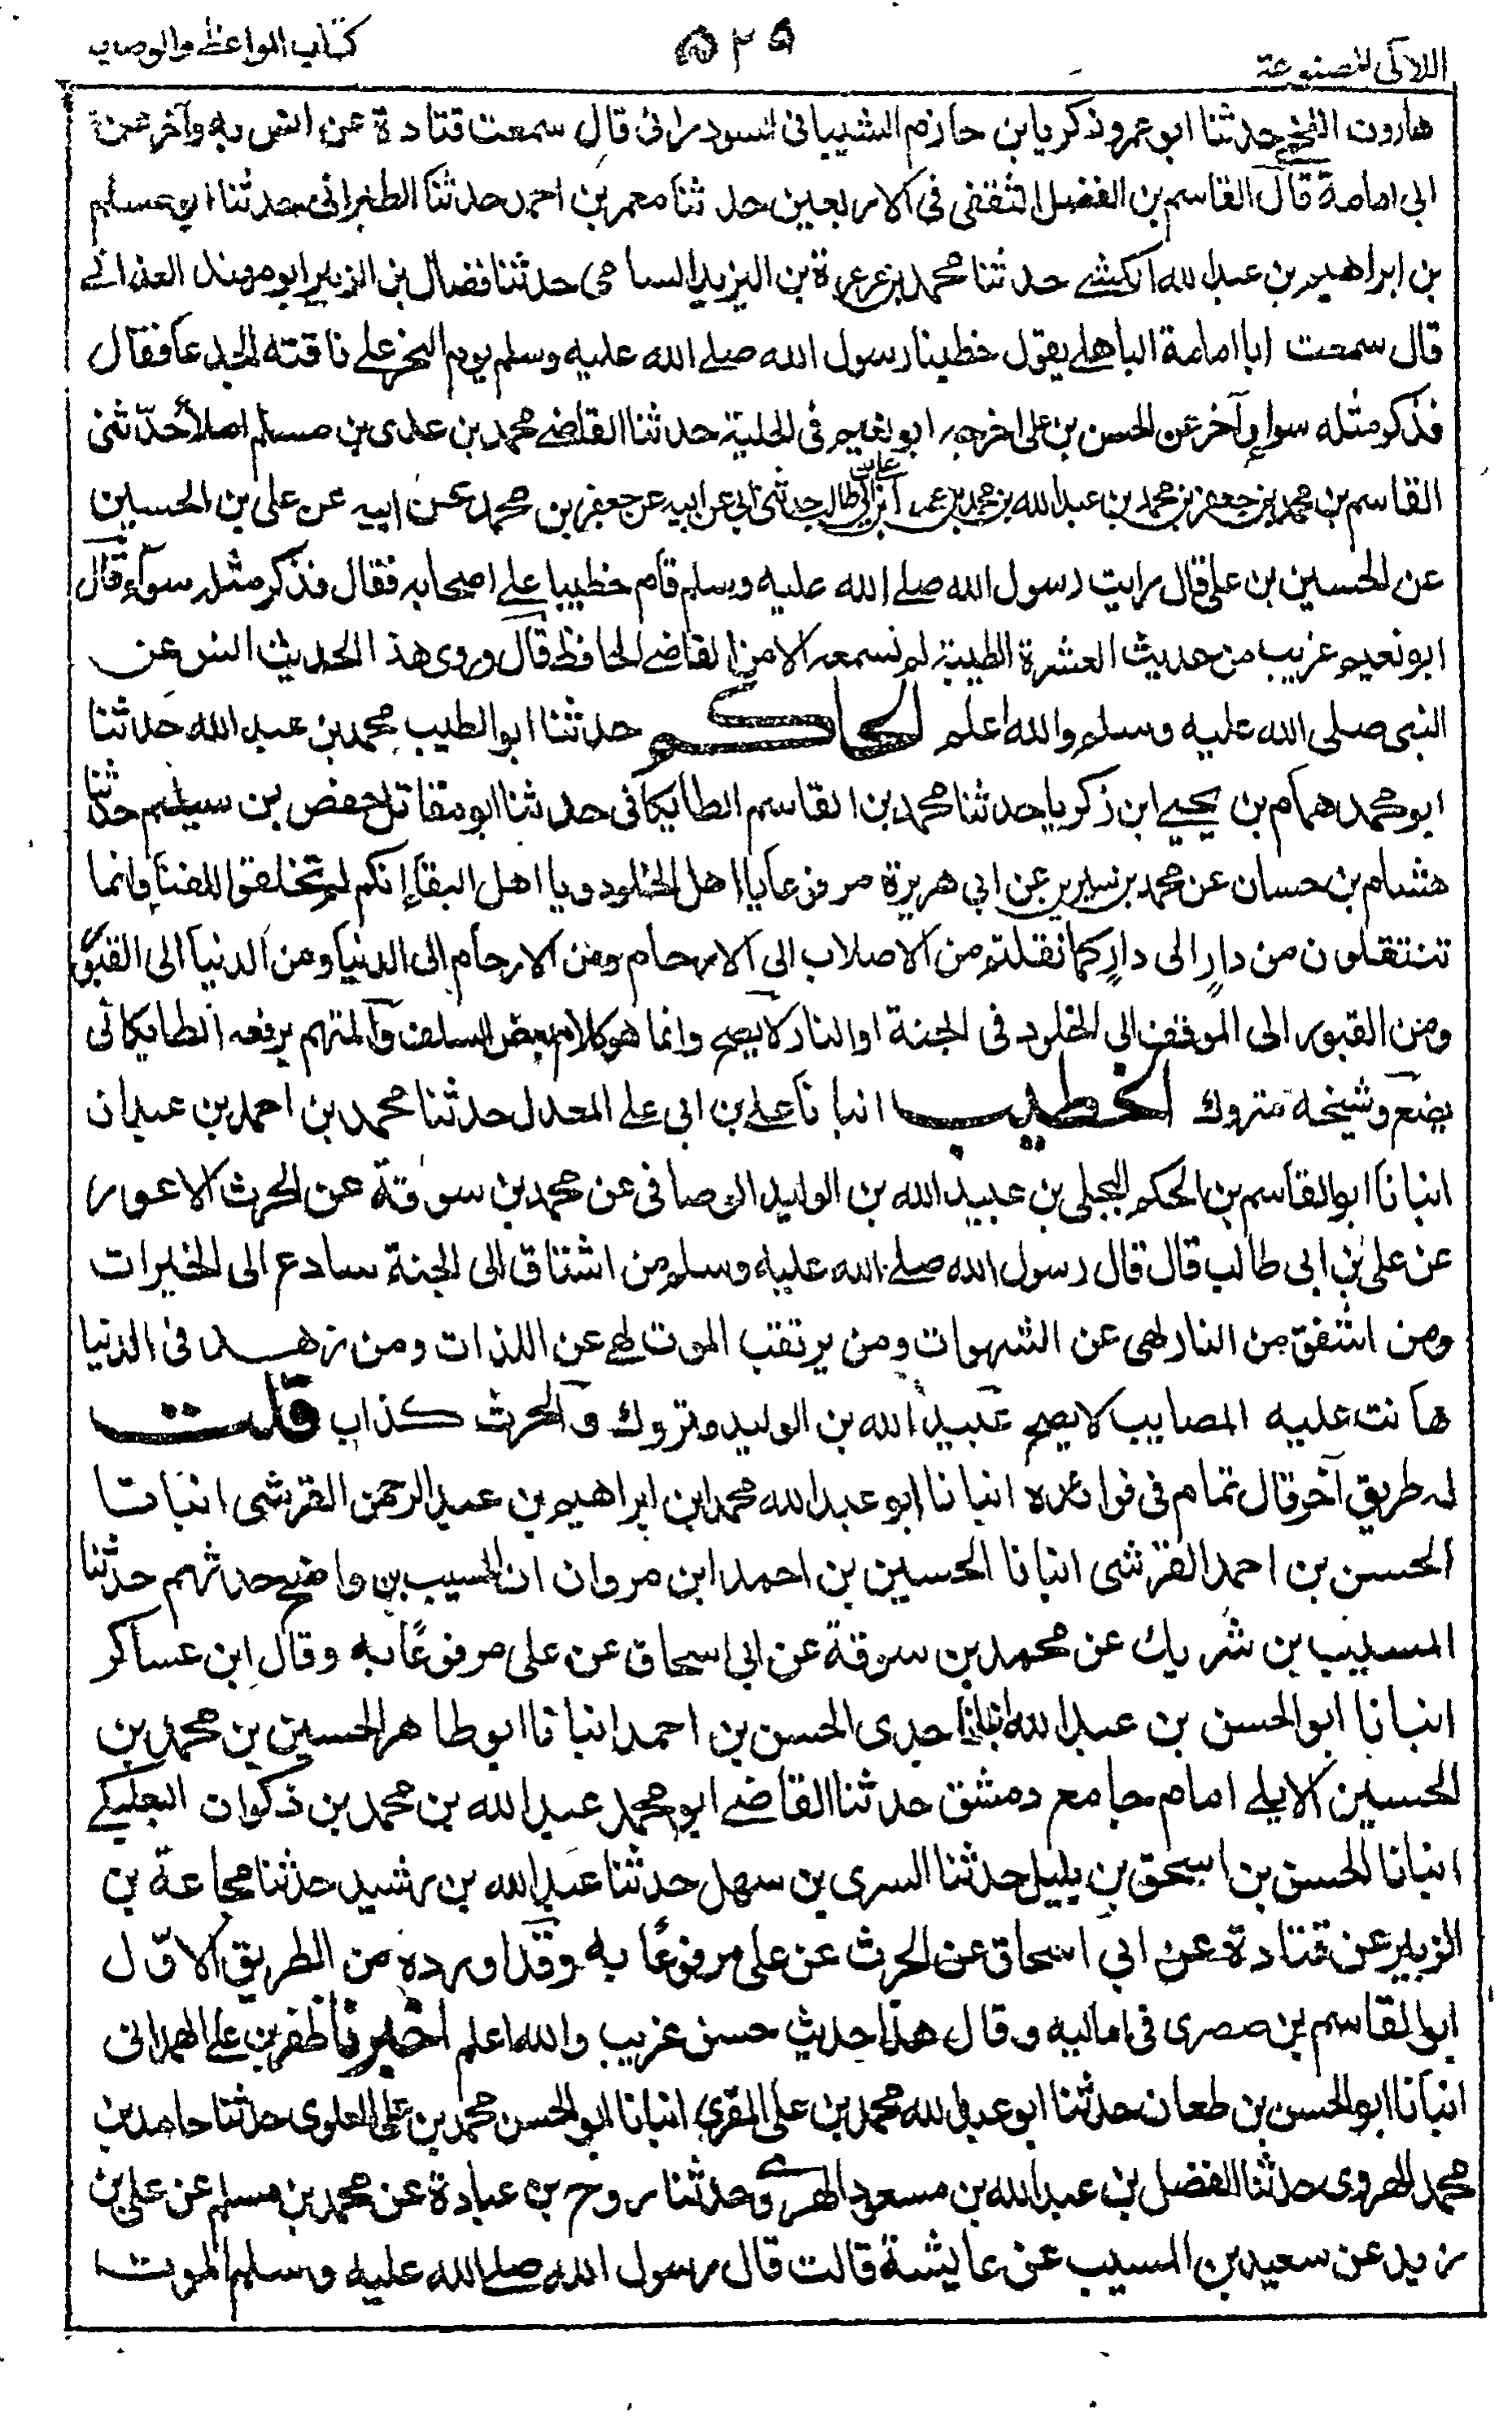 اللآلى المصنوعة
٥٢٥
كتاب المواعظ والوصايا
هارون الفتحي حدثنا ابو عمرو زكريا بن حازم الشيبانى السودرانى قال سمعت قتادة عن انس به وآخر عن
ابى امامة قال القاسم بن الفضل الثقفى فى الاربعين حدثنا معمر بن احمد حدثنا الطبرانى حدثنا ابو مسلم
بن ابراهيم بن عبد الله الكشے حدثنا محمد بن عرعرة بن اليزيد السامى حدثنا فضال بن الزبير ابو مهند الغدانے
قال سمعت ابا امامة الباهلے يقول خطبنا رسول الله صلے الله عليه وسلم يوم النحر علے ناقته الجدعا فقال
فذكر مثله سواء وآخر عن الحسن بن على اخرجه ابو نعيم فى الحلية حدثنا القاضے محمد بن عدى بن مسلم املاً حدّثنى
القاسم بن محمد بن جعفر بن محمد بن عبد الله بن محمد بن عمر بن على ابن ابى طالب حدثنى ابى عن ابيه عن جعفر بن محمد عن ابيه عن على بن الحسين
عن الحسين بن على قال رايت رسول الله صلے الله عليه وسلم قام خطيبا علے اصحابه فقال فذكر مثله سوآء قال
ابو نعيم غريب من حديث العشرة الطيبة لم نسمعه الا من القاضے الحافظ قال وروى هذا الحديث انس عن
النبى صلى الله عليه وسلم والله اعلم الحاكم حدثنا ابو الطيب محمد بن عبد الله حدثنا
ابو محمد همام بن يحيے ابن زكريا حدثنا محمد بن القاسم الطايكانى حدثنا ابو مقاتل حفص بن سيلم حدثنا
هشام بن حسان عن محمد بن سيرين عن ابي هريرة مرفوعا يا اهل الخلود ويا اهل البقاء إنكم لم تخلقوا للفناء وانما
تنتقلون من دارٍ الى دارٍ كما نقلتم من الاصلاب الى الارحام ومن الارحام إلى الدنيا ومن الدنيا الى القبو
ومن القبور الى الموقف الى الخلود فى الجنة او النار لا يصح وانما هو كلام بعض السلف والمتهم برفعه الطايكانى
يضع وشيخه متروك الخطيب انبانا علے بن ابى علے المعدل حدثنا محمد بن احمد بن عبدان
انبانا ابو القاسم بن الحكم البجلى بن عبيد الله بن الوليد الوصافى عن محمد بن سوقة عن الحرث الاعور
عن على بن ابى طالب قال قال رسول الله صلے الله عليه وسلم من اشتاق الى الجنة سادع الى الخيرات
ومن اشفق من النار لهى عن الشهوات ومن يرتقب الموت لهے عن اللذات ومن زهد فى الدنيا
هانت عليه المصايب لا يصح عبيد الله بن الوليد متروك والحرث كذاب قلت
له طريق آخر قال تمام فى فوائده انبانا ابو عبد الله محمد ابن ابراهيم بن عبد الرحمن القرشى انبانا
الحسن بن احمد القرشى انبانا الحسين بن احمد ابن مروان ان المسيب بن واضح حدثهم حدثنا
المسيب بن شريك عن محمد بن سوقة عن ابى اسحاق عن على مرفوعًا به وقال ابن عساكر
انبانا ابو الحسن بن عبد الله انبانا جدى الحسن بن احمد انبانا ابو طاهر الحسين بن محمد بن
الحسين الابلے امام جامع دمشق حدثنا القاضے ابو محمد عبد الله بن محمد بن ذكوان البعلبكے
انبانا الحسن بن اسحق بن بليل حدثنا السرى بن سهل حدثنا عبد الله بن رشيد حدثنا مجاعة بن
الزبير عن قتادة عن ابي اسحاق عن الحرث عن على مرفوعًا به وقد اورده من الطريق الاوّل
ابو القاسم بن صصرى فى اماليه وقال هذا حديث حسن غريب والله اعلم اخبرنا ظفر بن علے الهمدانى
انبانا ابو الحسن بن طعان حدثنا ابو عبد الله محمد بن على المقرى انبانا ابو الحسن محمد بن على العلوى حدثنا حامد بن
محمد الهروى حدثنا الفضل بن عبد الله بن مسعود الهروے حدثنا روح بن عبادة عن محمد بن مسلم عن على بن
زيد عن سعيد بن المسيب عن عايشة قالت قال رسول الله صلے الله عليه وسلم الموت